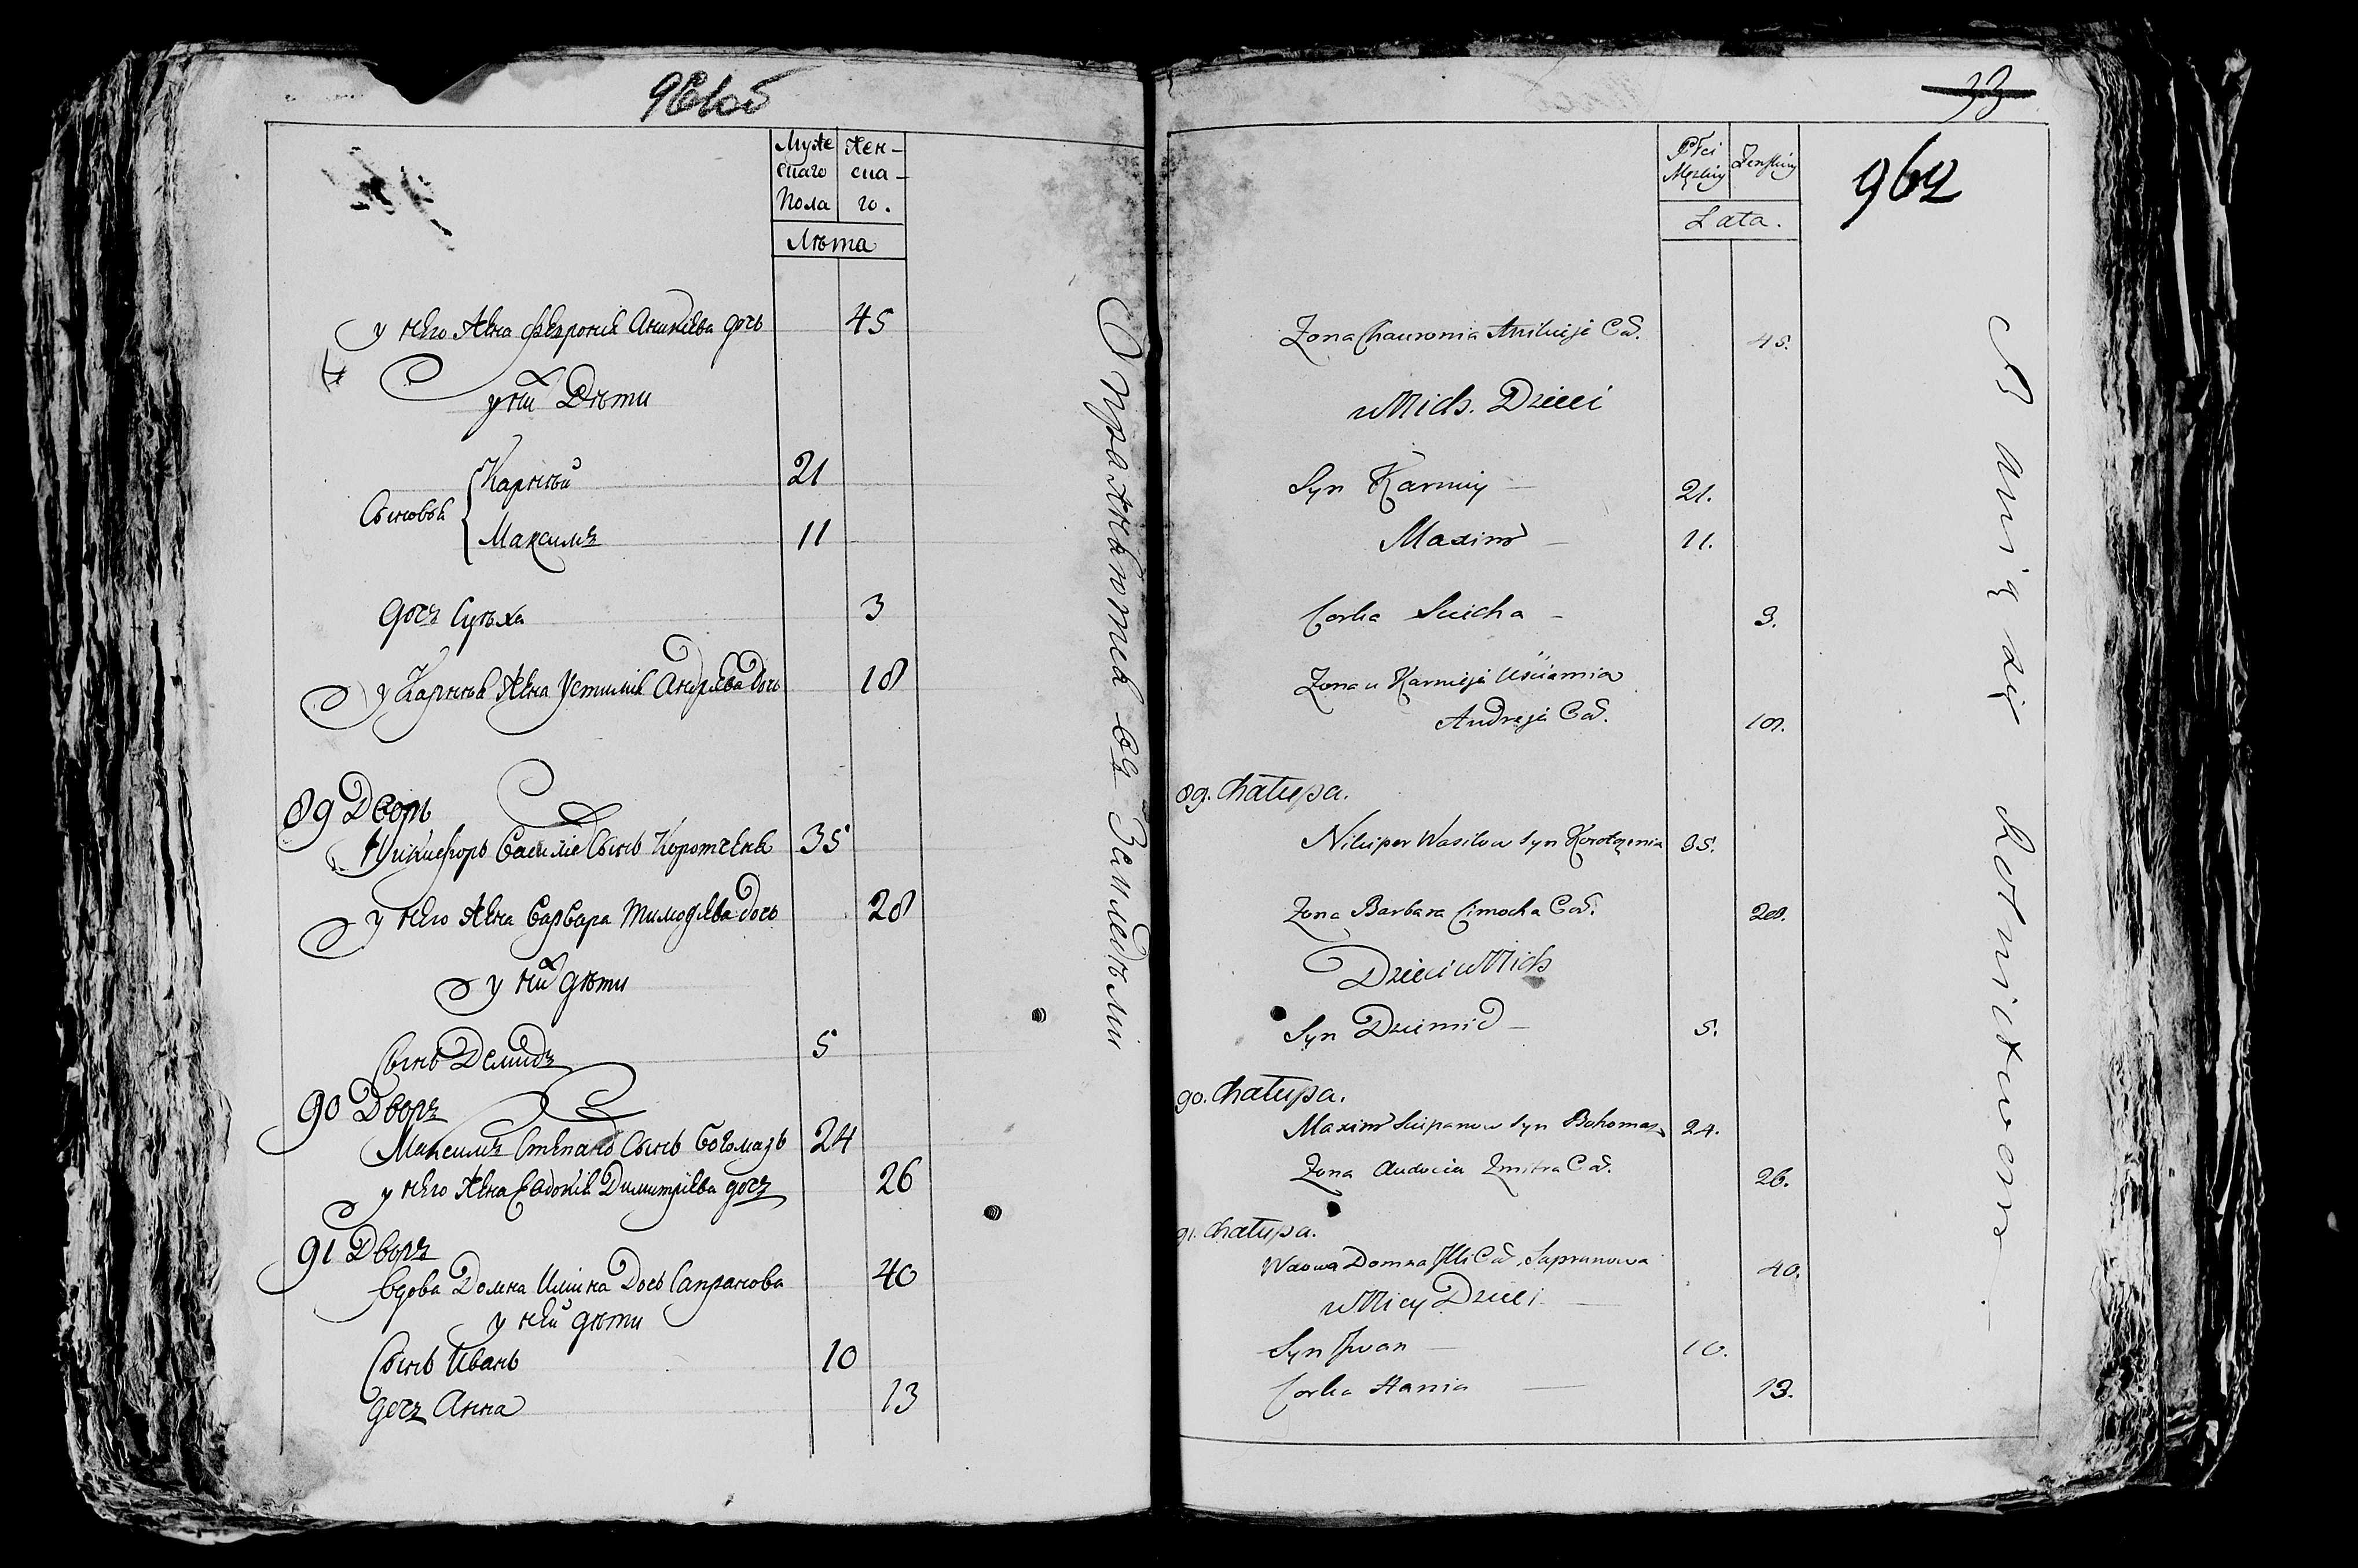 961об
Муже Жен–
скаго ска–
Пола го.
Лѣта
у него жена Феврония Аникиева дочь 45
у них Дѣти
Сыновья { Карнѣй 21
Максимъ 11
дочь Сулѣха 3
у Карнѣя жена Устимия Андреева дочь 18
89 Дворъ
Никифоръ Василіе Сынъ Коротченя 35
у него жена Варвара Тимофѣева дочь 28
у них дѣти
Сынъ Демидъ 5
90 Дворъ
Максимъ Степано Сынъ Богомазъ 24
у него жена Евдокия Димитріева дочь 26
91 Дворъ
Вдова Домна Илiина Дочь Сапранова 40
у ней дѣти
Сынъ Иванъ 10
дочь Анна 13
Упражняются въ Земледѣліи
33
962
Płci Męzkiey Żenskiey
Lata.
Zona Chauronia Anikieja Cod. 45.
u Nich. Dzieci
Syn Karniey – 21.
Maxim – 11.
Corka Suicha – 3.
Zona u Karnieja Uściamia
Andreja Cod. 18.
89. Chałupa.
Nikiper Wasilow syn Korotczenia 35.
Zona Barbara Cimocha Cod. 28.
Dzieci u Nich
Syn Dziemid – 5.
90. Chałupa.
Maxim Sciepanow syn Bohomaz 24.
Zona Audocia Zmitra Cod. 26.
91. Chałupa.
Wdowa Domna Illi Cod. Sapranowa 40.
u Niey Dzieci –
Syn Jwan – 10.
Corka Hania – 13.
Bawią się Rolnictwem –